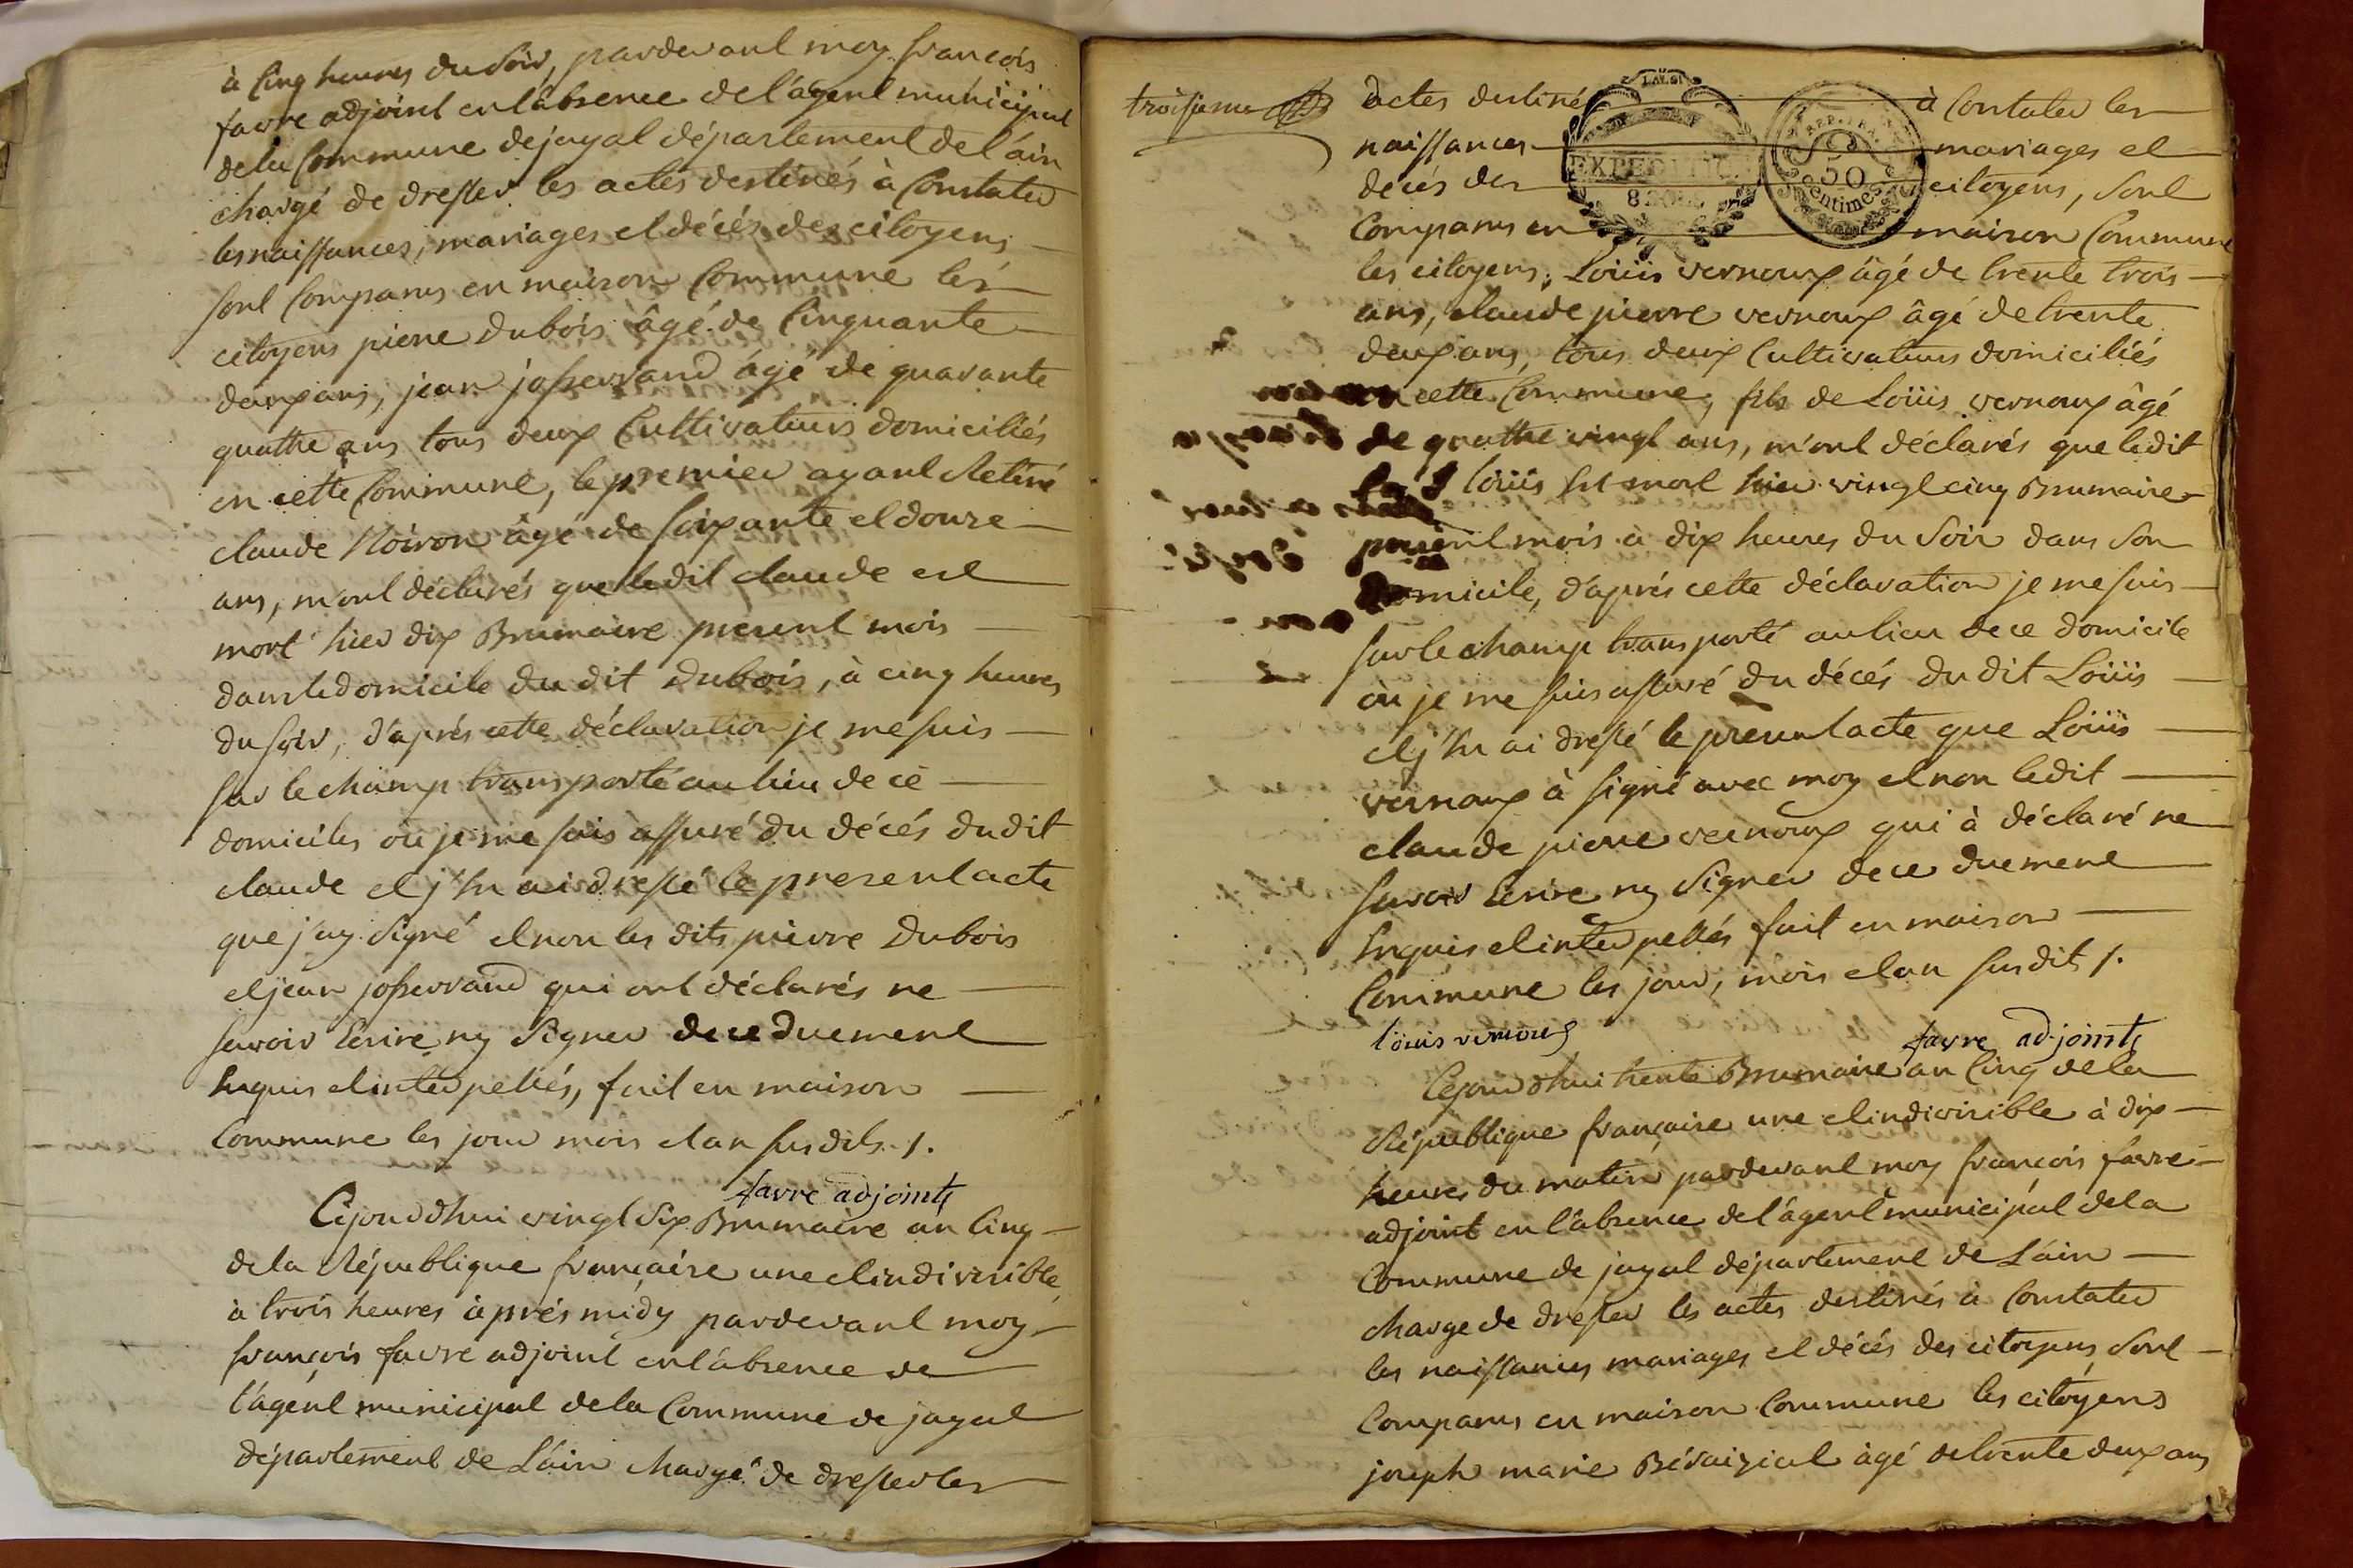 à Cinq heures du Soir, pardevant moy françois
favre adjoint en l'âbsence de l'âgent municipal
dela Commune de jayal département de l'âin
chargé de dresser les actes destinés à Constater
les naissances, mariages et décés des citoyens
sont Comparus en maison Commune les
citoyens pierre Dubois âgé de Cinquante
deux ans, jean josserrand âgé de quarante
quatre ans tous deux Cultivateurs domiciliés
en cette Commune, le premier ayant Retiré
claude Noiron âgé de soixante et douze
ans, m'ont déclarés que ledit claude est
mort hier dix Brumaire present mois
dans le domicile du dit Dubois, à cinq heures
du soir, d'aprés cette déclaration je me suis
sur le champ transporté au lieu de ce
domicile où je me suis assuré du décés dudit
claude et j'en ai dressé le present acte
que j'ay signé et non les dits pierre Dubois
et jean josserrand qui ont déclarés ne
savoir Ecrire ny Signer de ce duement
Enquis et interpellés, fait en maison
Commune les jour mois et an susdits ./.
favre adjoint
Cejourdhui vingt six Brumaire an Cinq
dela République française une et indivisible,
à trois heures âprés midy pardevant moy
françois favre adjoint en l'âbsence de
l'âgent municipal dela Commune de jayal
département de L'âin chargé de dresser les
troisieme
actes destinés à Constater les
naissances mariages et
décés des citoyens, sont
EXPED
REP. FRA.
50
Centimes
Comparus en maison Commune
les citoyens, Loüis vernoux âgé de trente trois
ans, claude pierre vernoux âgé de trente
deux ans, tous deux Cultivateurs domiciliés
cette Commune, fils de Loüis vernoux âgé
de quatre vingt ans, m'ont déclarés que ledit
loüis Est mort hier vingt cinq Brumaire
present mois à dix heures du Soir dans son
domicile, d'aprés cette déclaration je me suis
sur le champ transporté au lieu de ce domicile
où je me suis assuré du décés du dit Loüis
et j'en ai dressé le present acte que Loüis
vernoux à signé avec moy et non ledit
claude pierre vernoux qui à déclaré ne
savoir Ecrire ny Signer de ce duement
Enquis et interpellés fait en maison
Commune les jour, mois et an susdits ./.
loüis vernoux favre adjoint
Cejourdhui trente Brumaire an Cinq dela
République française une et indivisible à dix
heures du matin pardevant moy françois favre
adjoint en l'âbsence de l'âgent municipal dela
Commune de jayal département de L'âin
charge de dresser les actes destinés à Constater
les naissances mariages et décés des citoyens, sont
Comparus en maison Commune les citoyens
joseph marie âgé de trente deux ans